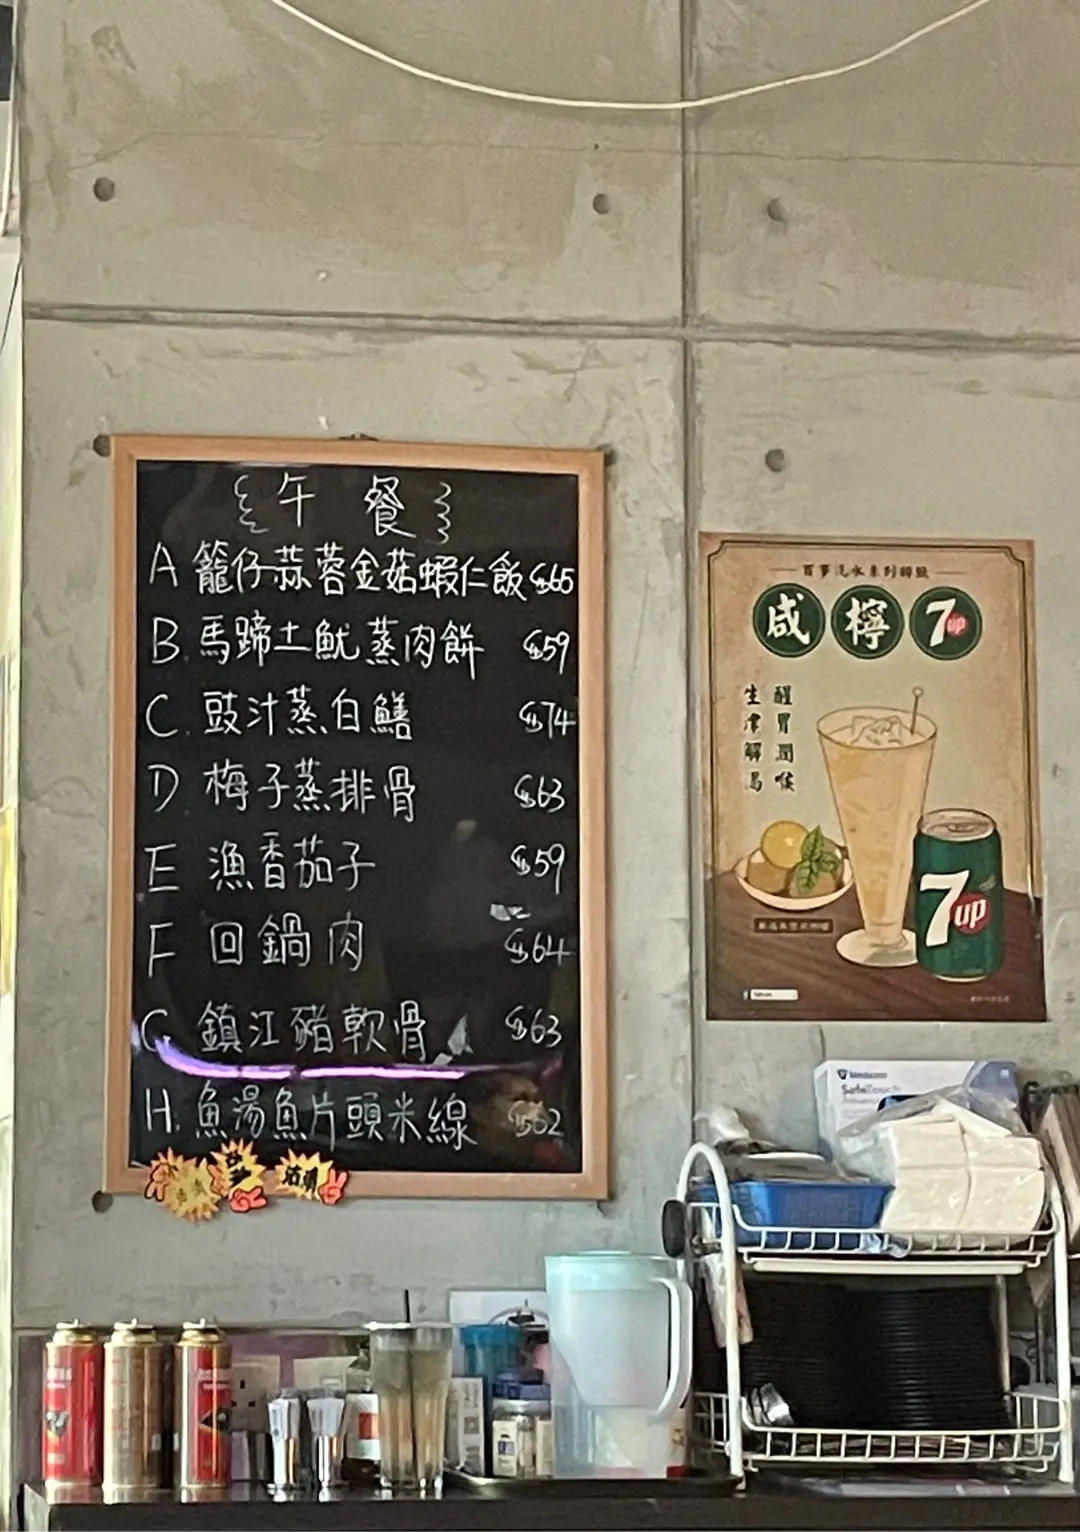 午 餐
A 籠仔蒜蓉金菇蝦仁飯 $65
B. 馬蹄土魷蒸肉餅 $59
C. 豉汁蒸白鱔 $74
D. 梅子蒸排骨 $63
E 漁香茄子 $59
F 回鍋肉 $64
G. 鎮江豬軟骨 $63
H. 魚湯魚片頭米線 $62
百事汽水系列聯盟
咸檸7up
醒胃潤喉
生津解渴
7up
SafeTouch